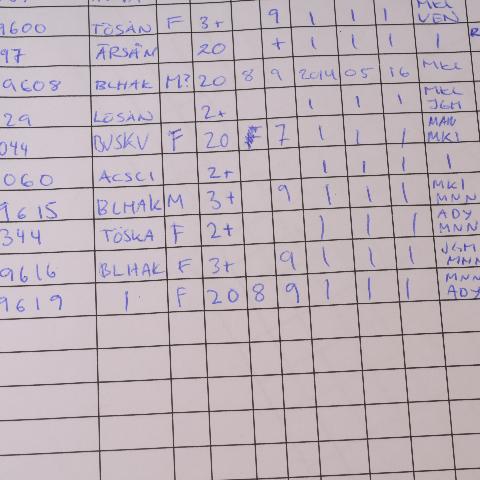 9600 TÖSÅN F 3+ 9 1 1 1 MKL VEN
97 ÄRSÅN 20 + 1 1 1 1
9608 BLHAK M? 20 8 9 2014 05 16 MKL
29 LÖSÅN 2+ 1 1 1 MKL JGH
044 BUSKV F 20 7 1 1 1 MAN MKL
060 ACSCI 2+ 1 1 1 1
9615 BLHAK M 3+ 9 1 1 1 MKL MNN
344 TÖSKA F 2+ 1 1 1 ADY MNN
9616 BLHAK F 3+ 9 1 1 1 JGH MNN
9619 1 F 20 8 9 1 1 1 MNN ADY